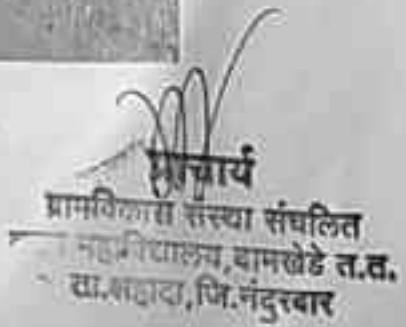 प्राचार्य
ग्रामविकास संस्था संचलित
महाविद्यालय,वामखेडे त.त.
ता.शहादा,जि.नंदुरबार